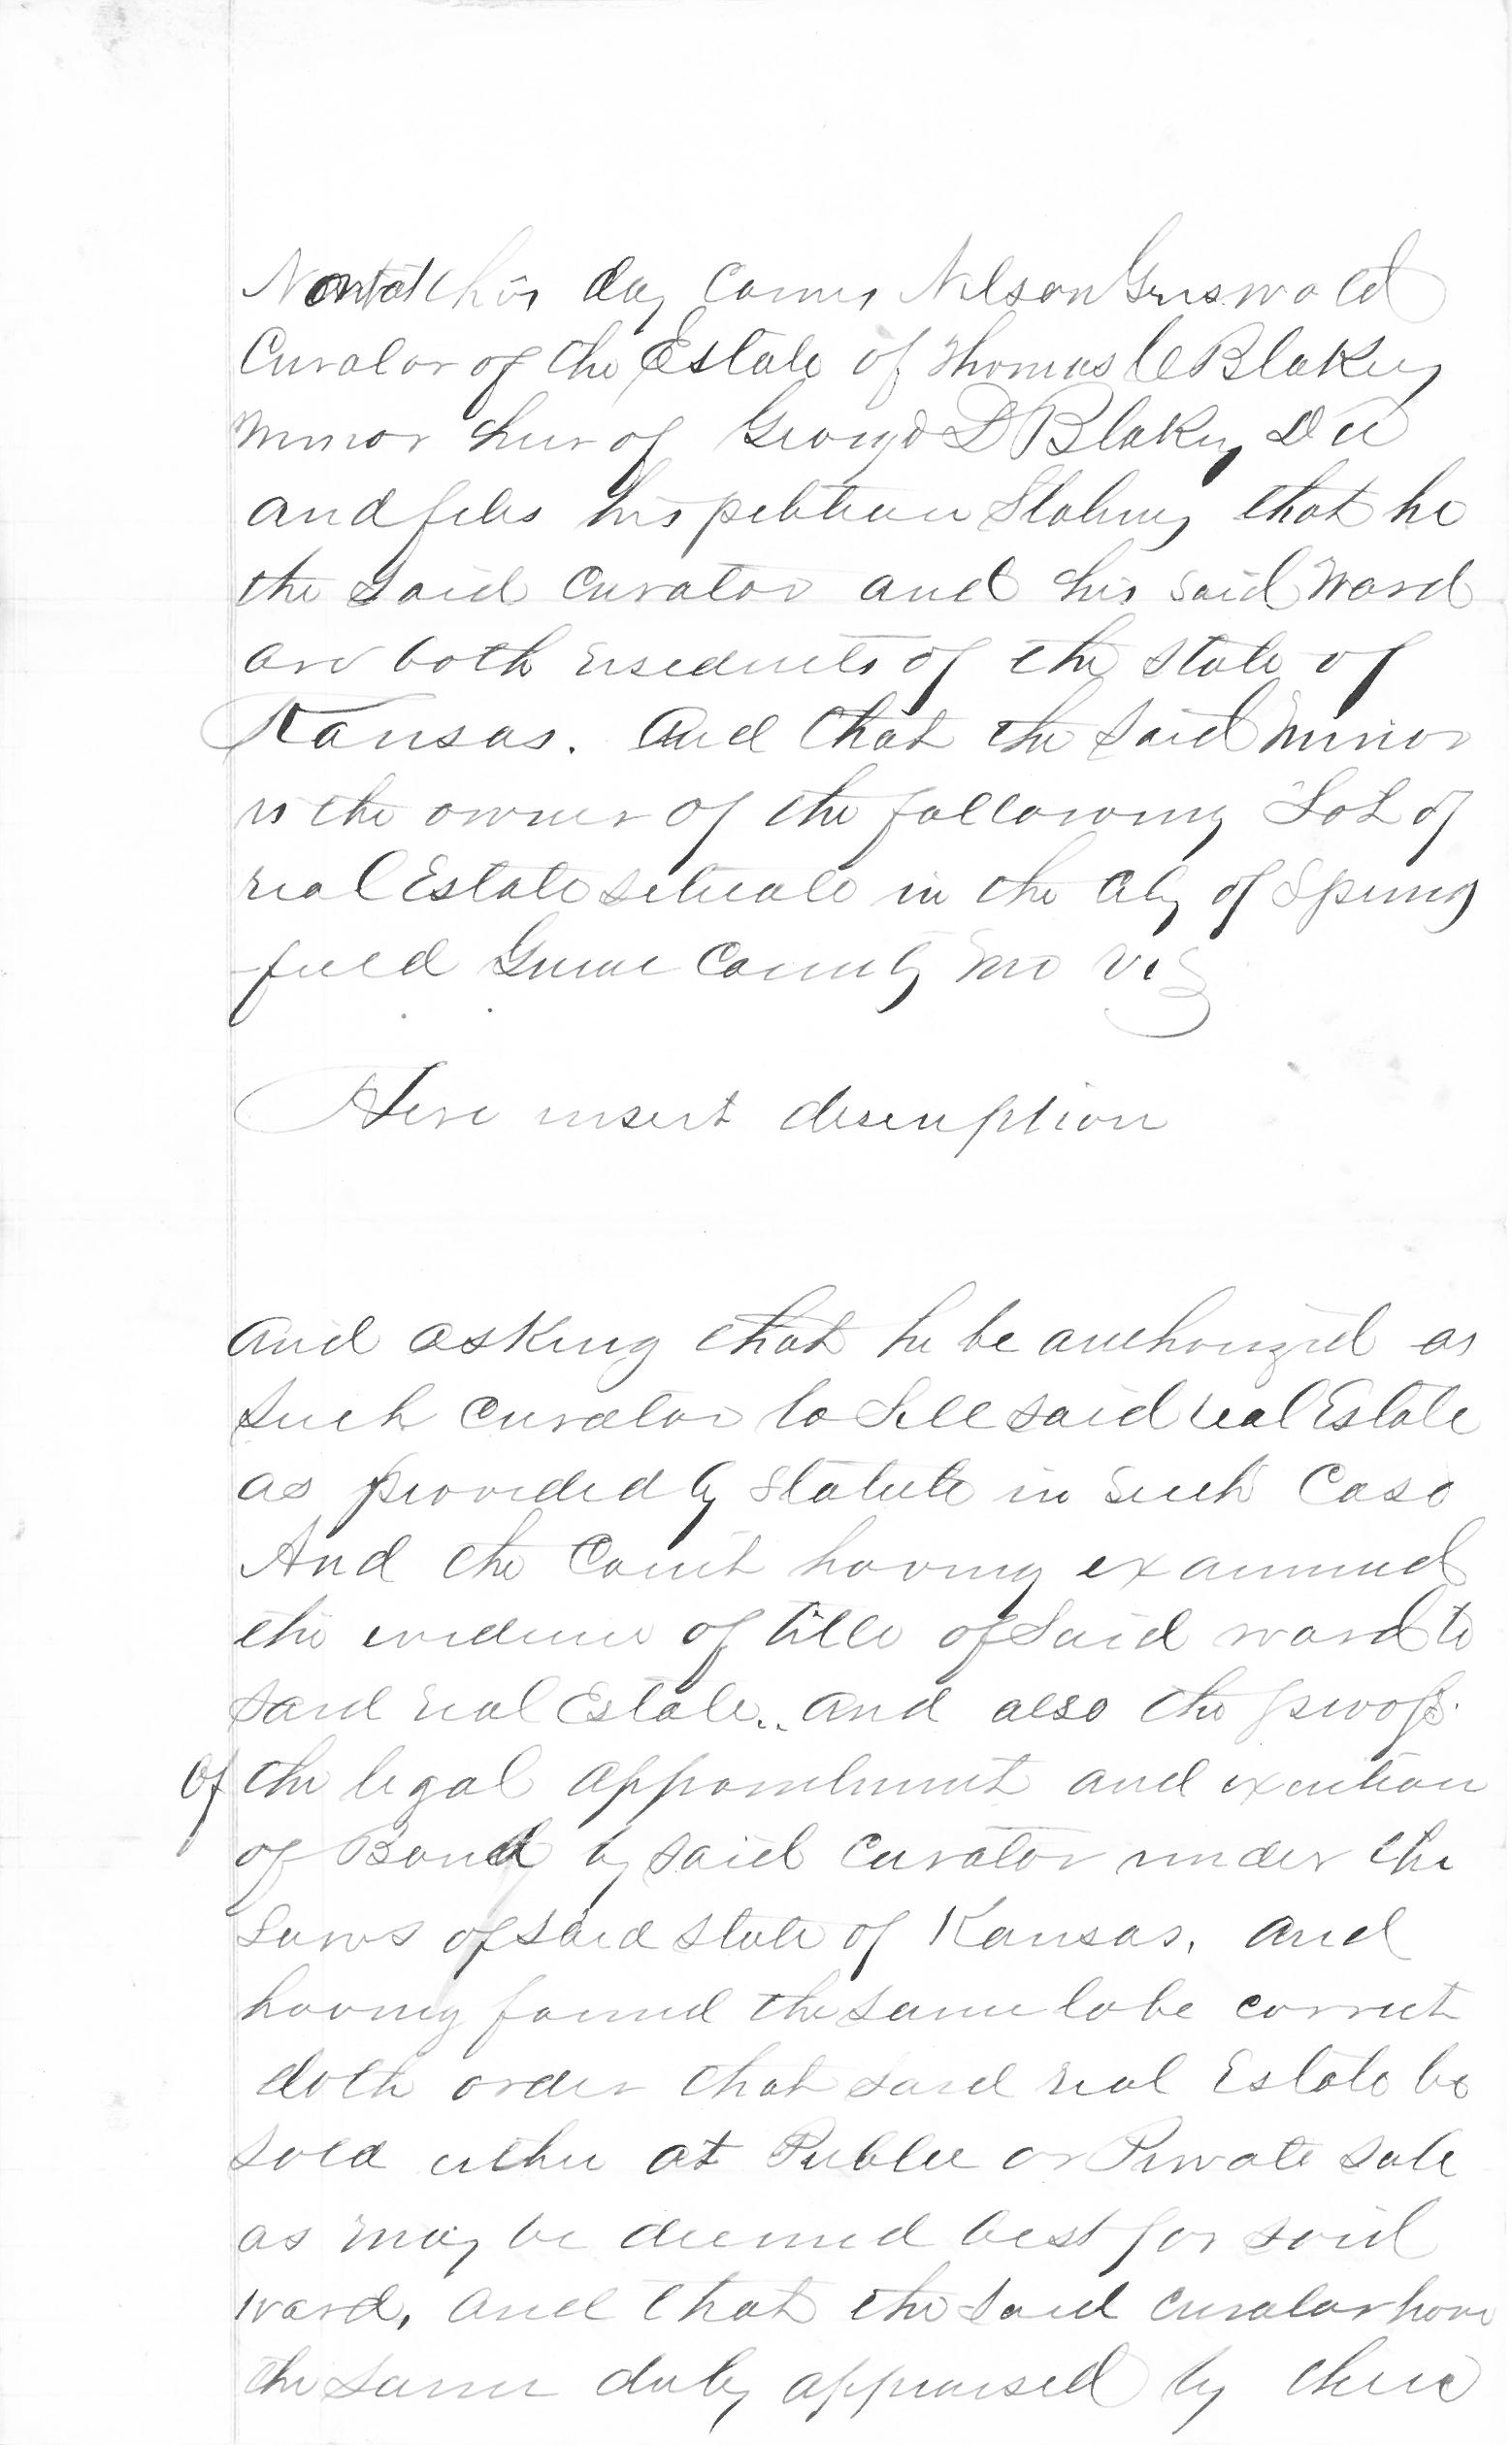 Now at this day Comes Nelson Griswold
Curator of the Estate of Thomas C Blakey
minor heir of George D Blakey Dec
and files his petition Stating that he
the Said Curator and his Said Ward
are both residents of the State of
Kansas. And that the Said Minor
is the owner of the following Lot of
real Estate situate in the City of Spring
field Greene County Mo Viz
Here insert description
and asking that he be authorized as
Such Curator to Sell said real Estate
as provided by Statute in Such Case
And the Court having examined
the evidence of title of Said ward to
said real Estate.. and also the proofs
of the legal appointment and execution
of Bond by said Curator under the
Laws of said State of Kansas. and
having found the same to be correct
doth order that said real Estate be
sold either at Public or Private sale
as may be deemed best for said
ward, and that the said Curator have
the same duly appraised by three